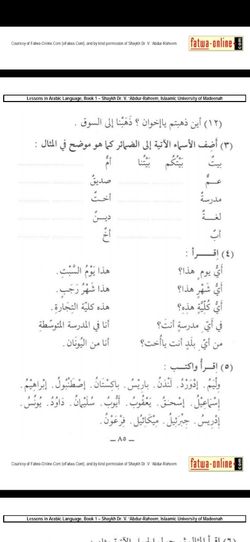 Courtesy of Fatwa-Online.Com (eFatwa.Com), and by kind permission of Shaykh Dr. V. 'Abdur-Raheem
fatwa-online.com
Lessons in Arabic Language, Book 1 – Shaykh Dr. V. 'Abdur-Raheem, Islaamic University of Madeenah
(١٢) أين ذهبتم يا إخوان ؟ ذَهَبْنا إلى السوق .
(٣) أَضِف الأسماء الآتية إلى الضمائر كما هو موضح في المثال :
بيتٌ بَيْتُكُم بَيْتُنا أمٌّ
عــمٌّ صديقٌ
مدرسةٌ أختٌ
لغــةٌ ديــنٌ
أبٌ أخٌ
(٤) إقــرأ :
أيُّ يومٍ هذا؟ هذا يَوْمُ السَّبْتِ.
أيُّ شَهْرٍ هذا؟ هذا شَهْرُ رَجَبٍ.
أيُّ كُلِّيَّةٍ هذِهِ؟ هذه كليّةُ التِّجارةِ.
في أيِّ مدرسةٍ أنتَ؟ أنا في المدرسة المتوسّطةِ
من أيِّ بلدٍ أنت يا أخت؟ أنا من اليُونَانِ.
(٥) إقرأ واكتــب :
وِلْيَمْ. إدْوَرْدُ. لَنْدَنُ. بارِيْسُ. باكِسْتَانُ. إصْطَنْبُولُ. إبْراهِيْمُ.
إسْماعِيْلُ. إسْحقُ. يَعْقُوْبُ. أَيُّوبُ. سُلَيْمَانُ. دَاوُدُ. يُونُسُ.
إدْرِيسُ. جِبْرَئيلُ. مِيْكَائيلُ. فِرْعَوْنُ.
— ٨٥ —
Courtesy of Fatwa-Online.Com (eFatwa.Com), and by kind permission of Shaykh Dr. V. 'Abdur-Raheem
fatwa-online.com
Lessons in Arabic Language, Book 1 – Shaykh Dr. V. 'Abdur-Raheem, Islaamic University of Madeenah